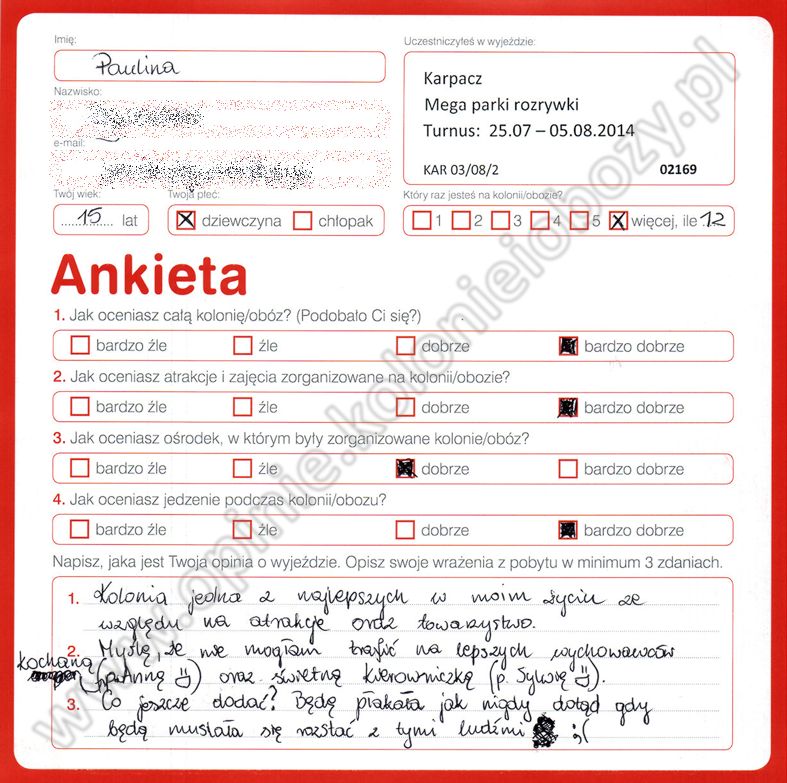 Imię:
Paulina
Uczestniczyłeś w wyjeździe:
Karpacz
Mega parki rozrywki
Turnus: 25.07 – 05.08.2014
KAR 03/08/2 02169
Nazwisko:
e-mail:
Twój wiek:
15 lat
Twoja płeć:
dziewczyna chłopak
Który raz jesteś na kolonii/obozie?
1 2 3 4 5 więcej, ile 12
Ankieta
1. Jak oceniasz całą kolonię/obóz? (Podobało Ci się?)
bardzo źle źle dobrze bardzo dobrze
2. Jak oceniasz atrakcje i zajęcia zorganizowane na kolonii/obozie?
bardzo źle źle dobrze bardzo dobrze
3. Jak oceniasz ośrodek, w którym były zorganizowane kolonie/obóz?
bardzo źle źle dobrze bardzo dobrze
4. Jak oceniasz jedzenie podczas kolonii/obozu?
bardzo źle źle dobrze bardzo dobrze
Napisz, jaka jest Twoja opinia o wyjeździe. Opisz swoje wrażenia z pobytu w minimum 3 zdaniach.
1. Kolonia jedna z najlepszych w moim życiu ze
względu na atrakcje oraz towarzystwo.
2. Myślę, że nie mogłam trafić na lepszych wychowawców
kochaną (p. Annę :)) oraz świetną kierowniczkę (p. Sylwię :)).
3. Co jeszcze dodać? Będę płakała jak nigdy dotąd gdy
będę musiała się rozstać z tymi ludźmi :(
www.opinie.kolonieiobozy.pl